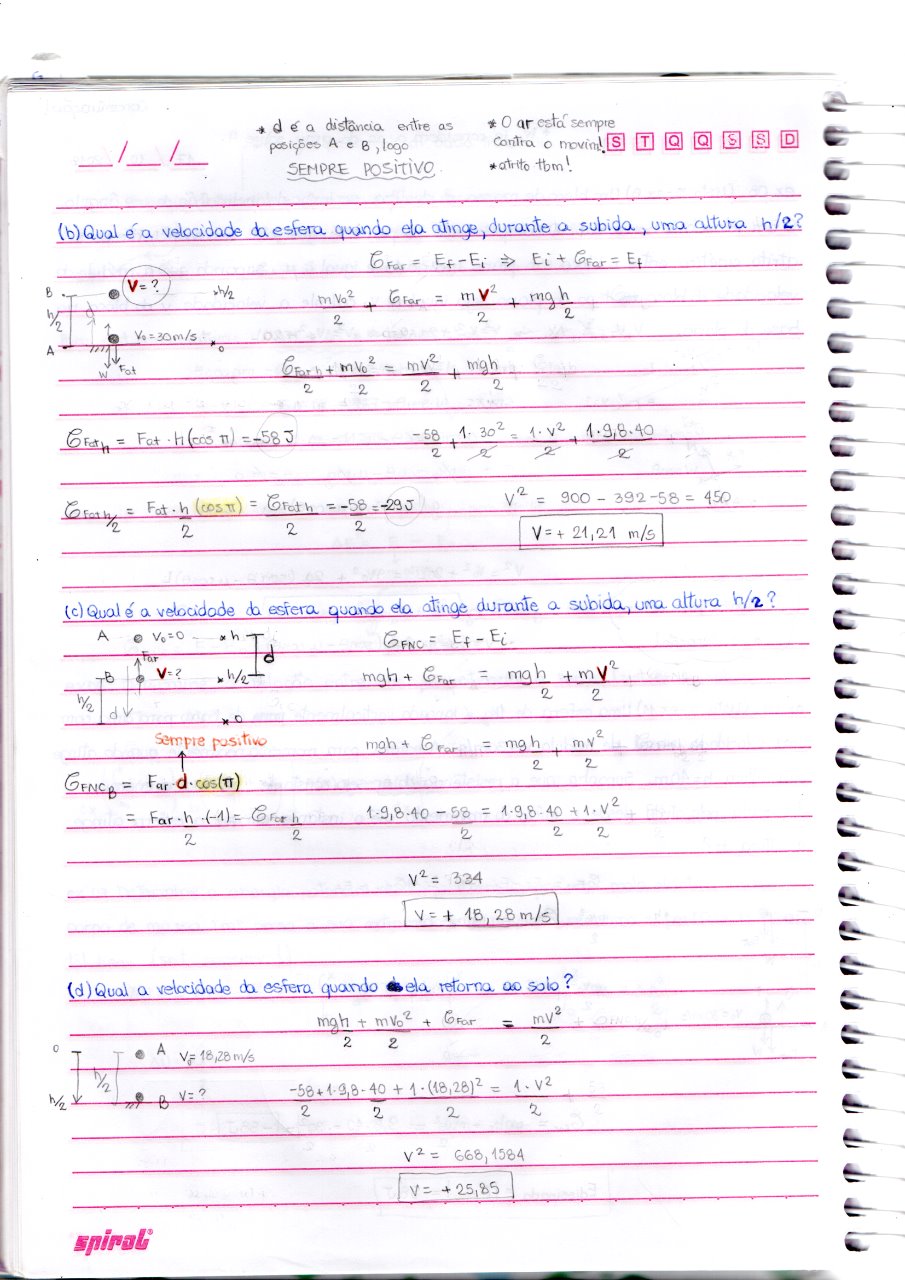 __/__/__
* d é a distância entre as
posições A e B, logo
SEMPRE POSITIVO
* O ar está sempre
contra o movim!
* atrito tbm!
S T Q Q S S D
(b) Qual é a velocidade da esfera quando ela atinge, durante a subida, uma altura h/2?
B V=? *h/2
h/2 d
A V₀=30m/s *0
W Fat
𝒯Far = Ef - Ei ⇒ Ei + 𝒯Far = Ef
mV₀²/2 + 𝒯Far = mV²/2 + mgh/2
𝒯Far h/2 + mV₀²/2 = mV²/2 + mgh/2
𝒯Fat h = Fat · h (cos π) = -58 J
-58/2 + 1·30²/2 = 1·V²/2 + 1·9,8·40/2
𝒯Fat h/2 = Fat·h/2 (cos π) = 𝒯Fat h/2 = -58/2 = -29 J
V² = 900 - 392 - 58 = 450
V = + 21,21 m/s
(c) Qual é a velocidade da esfera quando ela atinge durante a subida, uma altura h/2?
A V₀=0 * h
d
Far
B V=? * h/2
h/2 d
* 0
𝒯FNC = Ef - Ei
mgh + 𝒯Far = mgh/2 + mV²/2
Sempre positivo
mgh + 𝒯Far = mgh/2 + mV²/2
𝒯FNC B = Far · d · cos(π)
= Far·h/2 · (-1) = 𝒯Far h/2
1·9,8·40 - 58/2 = 1·9,8·40/2 + 1·V²/2
V² = 334
V = + 18,28 m/s
(d) Qual a velocidade da esfera quando ela retorna ao solo?
mgh/2 + mV₀²/2 + 𝒯Far = mV²/2
0 A V₀=18,28 m/s
h/2
h/2 B V=?
-58/2 + 1·9,8·40/2 + 1·(18,28)²/2 = 1·V²/2
V² = 668,1584
V = +25,85
spiral®